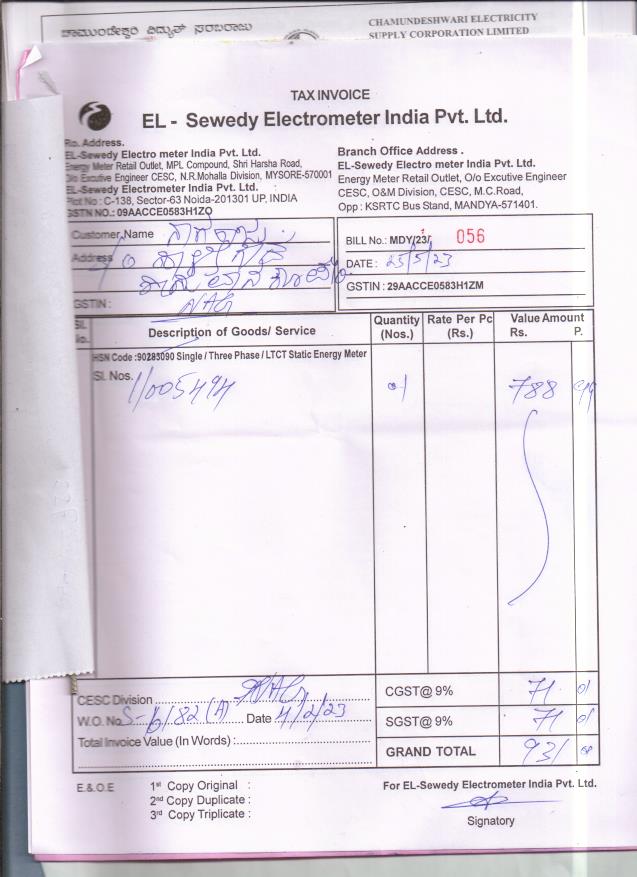 ಚಾಮುಂಡೇಶ್ವರಿ ವಿದ್ಯುತ್ ಸರಬರಾಜು
CHAMUNDESHWARI ELECTRICITY
SUPPLY CORPORATION LIMITED
TAX INVOICE
EL - Sewedy Electrometer India Pvt. Ltd.
Address.
EL-Sewedy Electro meter India Pvt. Ltd.
Energy Meter Retail Outlet, MPL Compound, Shri Harsha Road,
O/o Excutive Engineer CESC, N.R.Mohalla Division, MYSORE-570001
EL-Sewedy Electrometer India Pvt. Ltd.
Plot No : C-138, Sector-63 Noida-201301 UP, INDIA
GSTN NO.: 09AACCE0583H1ZO
Branch Office Address .
EL-Sewedy Electro meter India Pvt. Ltd.
Energy Meter Retail Outlet, O/o Excutive Engineer
CESC, O&M Division, CESC, M.C.Road,
Opp : KSRTC Bus Stand, MANDYA-571401.
Customer Name
Address
GSTIN :
BILL No.: MDY/23/ 056
DATE : 25/5/23
GSTIN : 29AACCE0583H1ZM
Sl. No. Description of Goods/ Service Quantity (Nos.) Rate Per Pc (Rs.) Value Amount Rs. P.
HSN Code :90283090 Single / Three Phase / LTCT Static Energy Meter
Sl. Nos.
01 788
CESC Division
W.O. No. Date 4/2/23
Total Invoice Value (In Words) :
CGST@ 9% 71 01
SGST@ 9% 71 01
GRAND TOTAL 931
E.& O.E
1st Copy Original :
2nd Copy Duplicate :
3rd Copy Triplicate :
For EL-Sewedy Electrometer India Pvt. Ltd.
Signatory